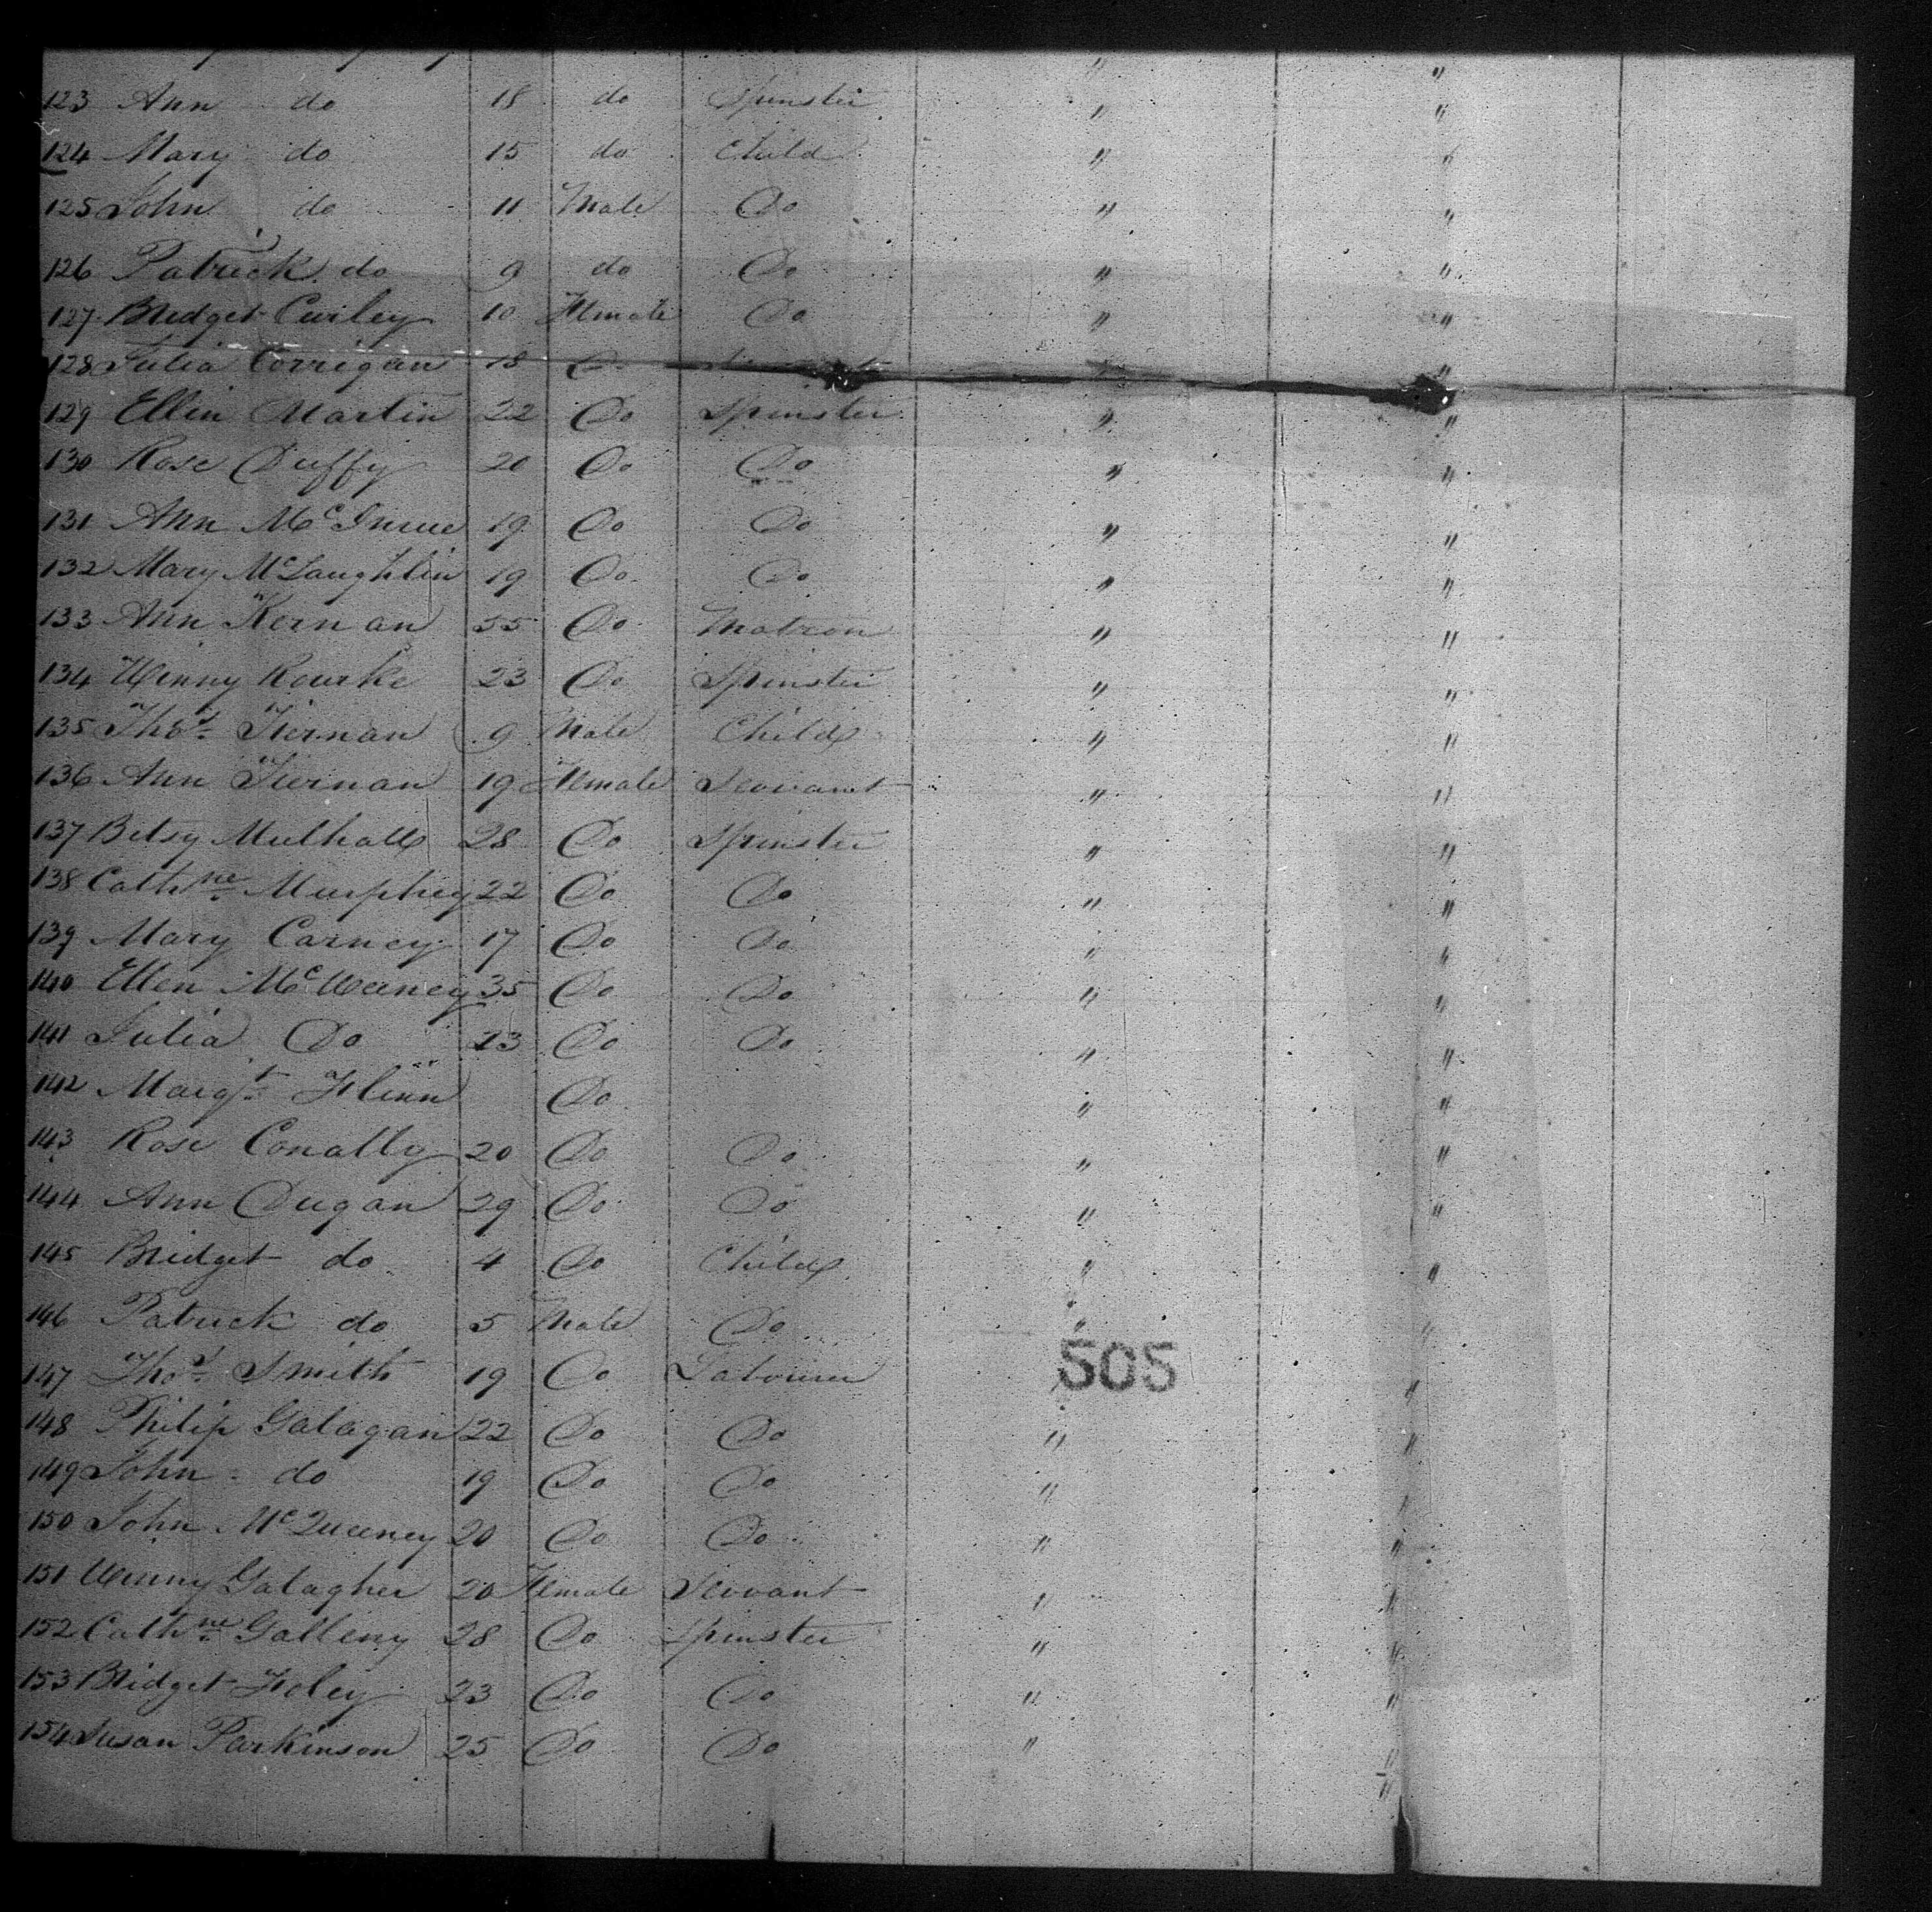 123 Ann do 18 do Spinster " "
124 Mary do 15 do Child " "
125 John do 11 Male Do " "
126 Patrick do 9 do Do " "
127 Bridget Curley 10 Female Do " "
128 Julia Corrigan 18 Do "
129 Ellin Martin 22 Do Spinster " "
130 Rose Duffy 20 Do Do " "
131 Ann 19 Do Do " "
132 Mary McLaughlin 19 Do Do " "
133 Ann Kernan 55 Do Matron " "
134 Winny Rourke 23 Do Spinster " "
135 Thos. Tiernan 9 Male Child " "
136 Ann Tiernan 19 Female Servant " "
137 Betsy Mulhall 28 Do Spinster " "
138 Cathne Murphey 22 Do Do " "
139 Mary Carney 17 Do Do " "
140 Ellen McWeeney 35 Do Do " "
141 Julia Do 23 Do Do " "
142 Margt Flinn Do " "
143 Rose Conally 20 Do Do " "
144 Ann Dugan 29 Do Do " "
145 Bridget do 4 Do Child " "
146 Patrick do 5 Male Do " "
505
147 Thos. Smith 19 Do Labourer "
148 Philip Galagan 22 Do Do " "
149 John do 19 Do Do " "
150 John McQueeney 20 Do Do " "
151 Winny Galagher 20 Female Servant " "
152 Cathne Galleny 28 Do Spinster " "
153 Bridget Foley 23 Do Do " "
154 Susan Parkinson 25 Do Do " "